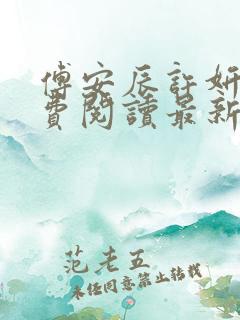 傅安辰許妍
費閱讀最新
范老五
未經同意禁止轉載